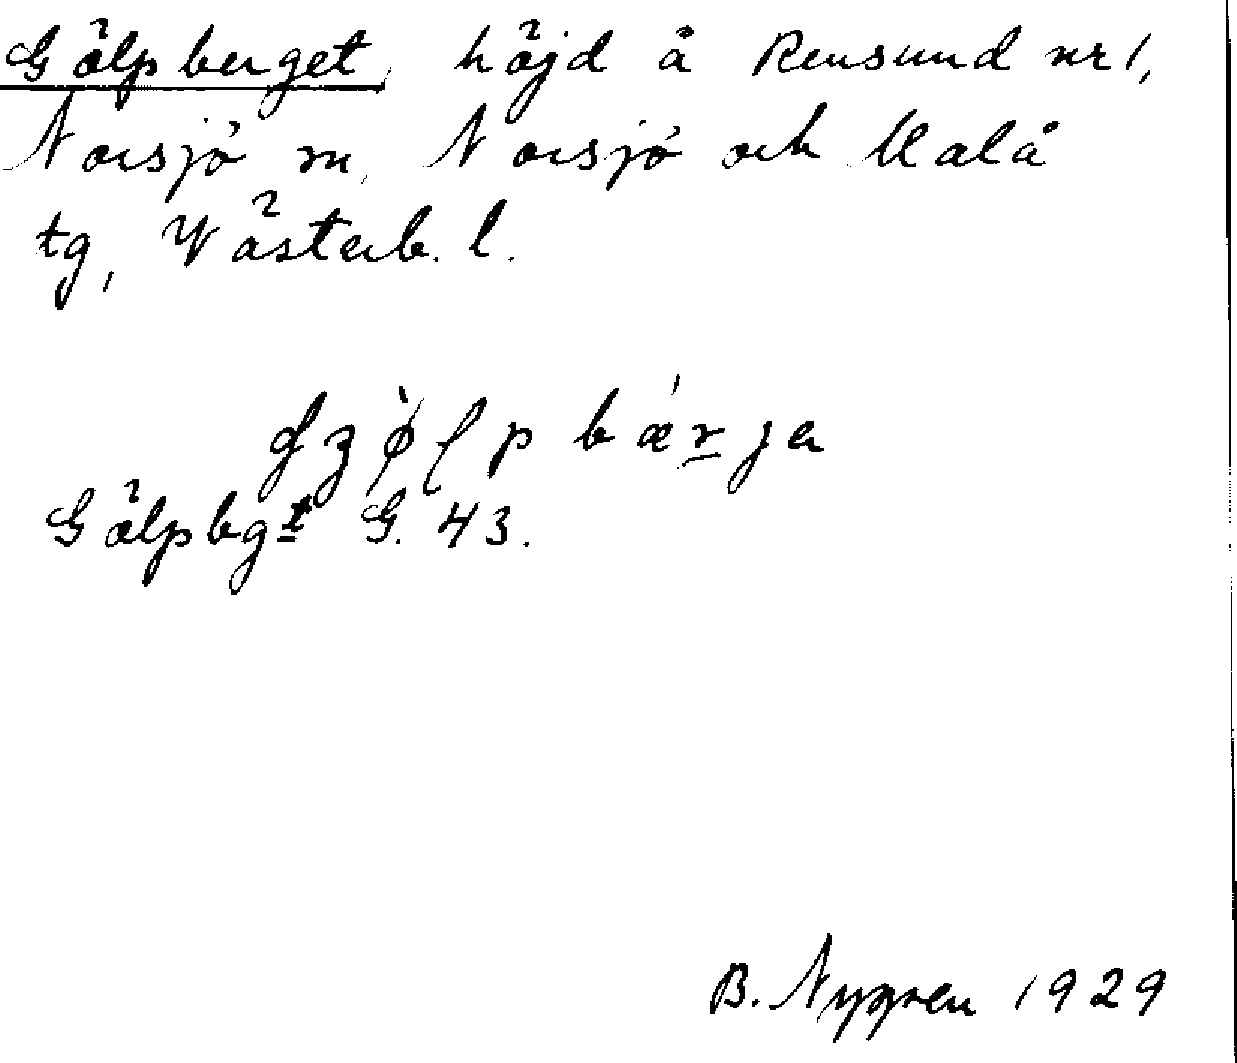 Gölpberget, höjd å Rensund nr 1,
Norsjö sn, Norsjö och Malå
tg, Västerb. l.
Gölpbgt G. 43.
B. Nygren 1929